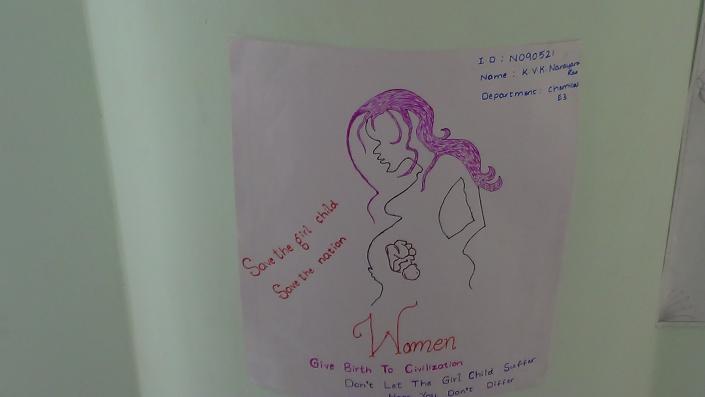 I D : N090521
Name : K.V.K. Narayana
Rao
Department : Chemical
E3
Save the girl child
Save the nation
Women
Give Birth To Civilization
Don't Let The Girl Child Suffer
You Don't Differ